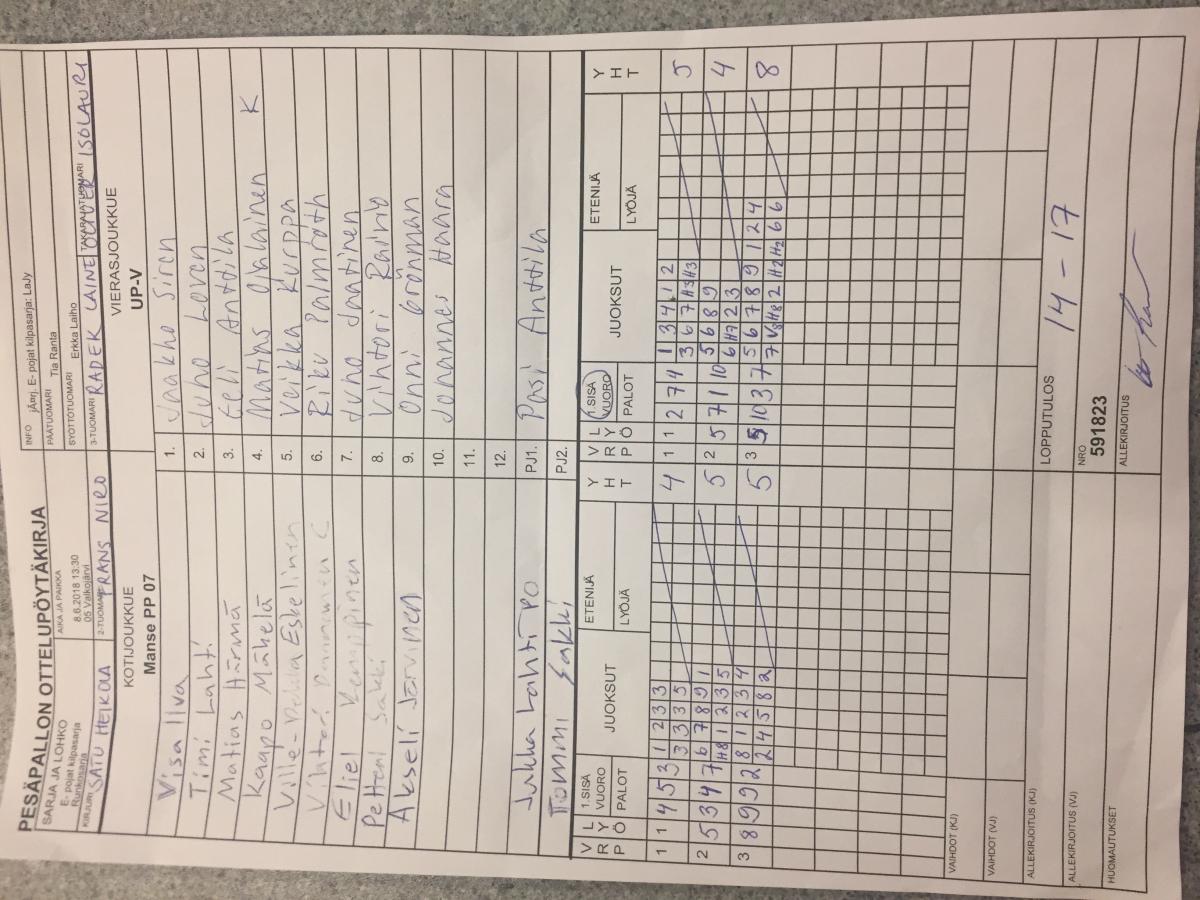 PESÄPALLON OTTELUPÖYTÄKIRJA
SARJA JA LOHKO
E- pojat kilpasarja
Runkosarja
AIKA JA PAIKKA
8.6.2018 13:30
05 Valkojärvi
INFO jÄrj. E- pojat kilpasarja: LaJy
PÄÄTUOMARI Tia Ranta
SYÖTTÖTUOMARI Erkka Laiho
KIRJURI SATU HEIKOLA
2-TUOMARI FRANS NIRO
3-TUOMARI RADEK LAINE
TAKARAJATUOMARI ISOLAURI
KOTIJOUKKUE
Manse PP 07
VIERASJOUKKUE
UP-V
Visa Ilva
1. Jaakho Siren
Timi Lahti
2. Juho Loven
Matias Härmä
3. Eeli Anttila
Kaapo Mähelä
4. Matias Ojalainen K
Ville-Pekka Eskelinen
5. Veikka Kurppa
Vihtori C
6. Riku Palmroth
Elie
7. Juho Jaatinen
Petteri Sakki
8. Vihtori Rainio
Akseli Järvinen
9. Onni Grönman
10. Johannes Haara
11.
12.
Jukka Lahtipo
PJ1. Pasi Anttila
Tommi Sakki
PJ2.
V R P L Y Ö 1.SISÄ VUORO PALOT JUOKSUT ETENIJÄ LYÖJÄ Y H T
V R P L Y Ö 1.SISÄ VUORO PALOT JUOKSUT ETENIJÄ LYÖJÄ Y H T
1 1 4 5 3 1 2 3 3 4
3 3 3 5
1 1 2 7 4 1 3 4 1 2 5
3 6 7 H3 H3
2 5 3 4 7 6 7 8 9 1 5
H8 1 2 3 5
2 5 7 1 10 5 6 8 9 4
6 H7 2 3
3 8 9 9 2 8 1 2 3 4 5
2 4 5 8 2
3 5 10 3 7 5 6 7 8 9 1 2 4 8
7 V8 H8 2 H2 H2 6 6
VAIHDOT (KJ)
VAIHDOT (VJ)
ALLEKIRJOITUS (KJ)
LOPPUTULOS 14 - 17
ALLEKIRJOITUS (VJ)
NRO
591823
HUOMAUTUKSET
ALLEKIRJOITUS